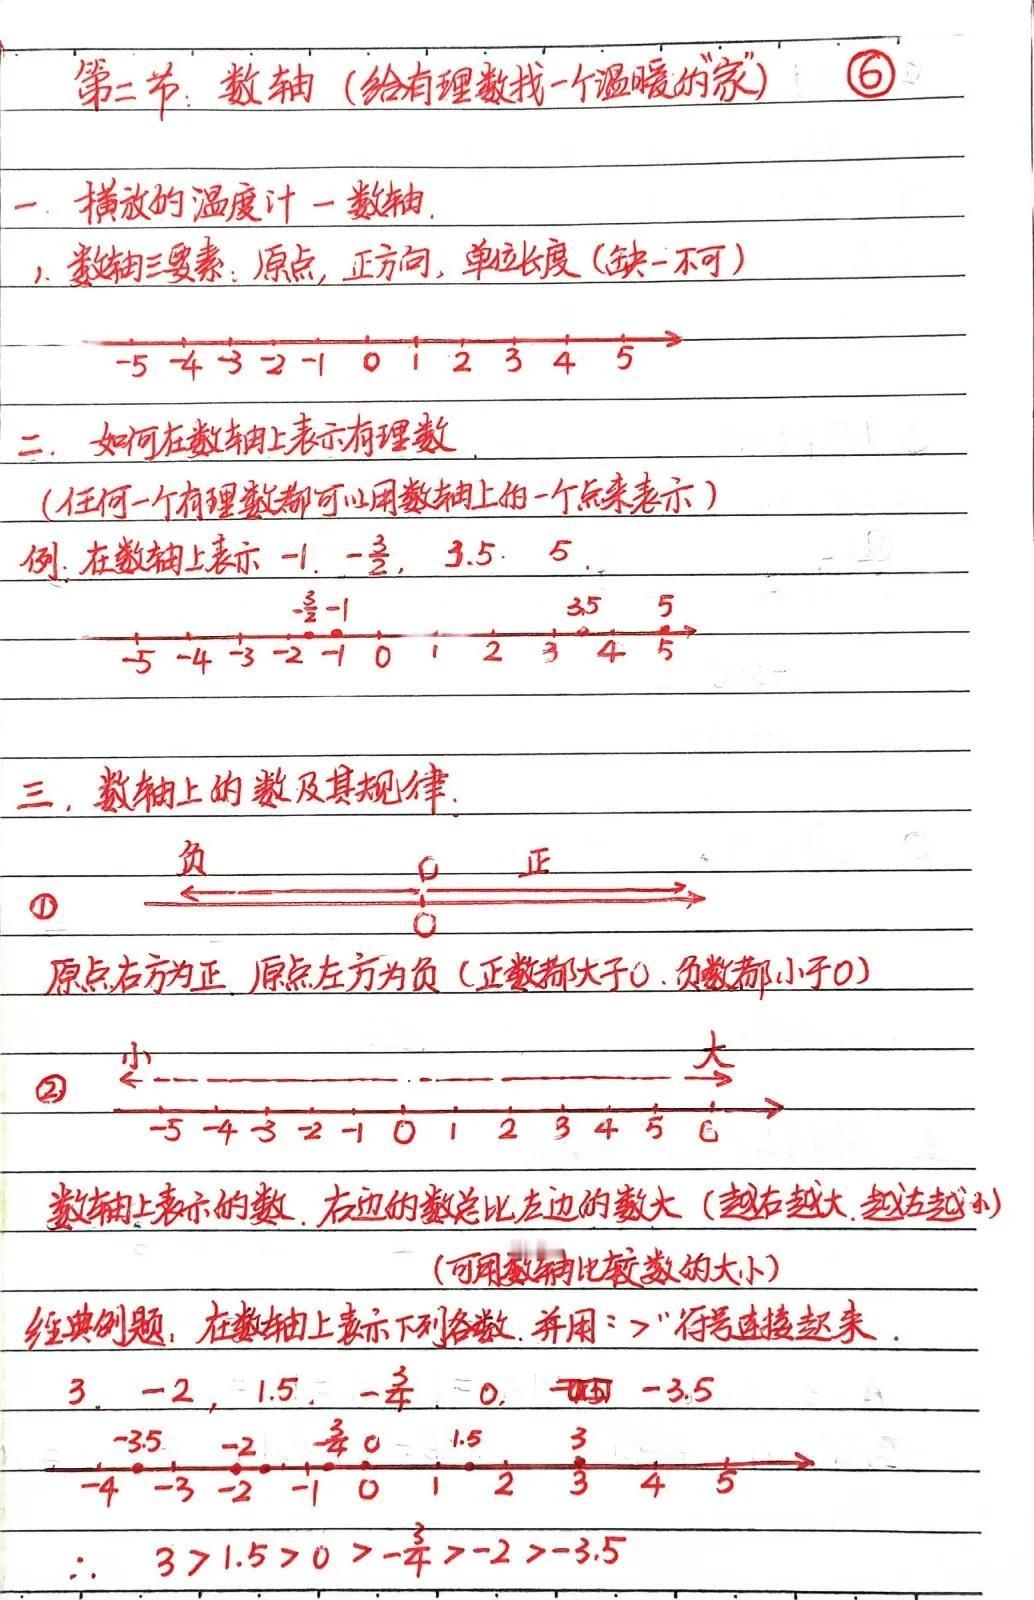 第二节: 数轴 (给有理数找一个温暖的"家") ⑥
一. 横放的温度计 — 数轴.
1. 数轴三要素: 原点, 正方向, 单位长度 (缺一不可)
-5 -4 -3 -2 -1 0 1 2 3 4 5
二. 如何在数轴上表示有理数
(任何一个有理数都可以用数轴上的一个点来表示)
例. 在数轴上表示 -1. -3/2, 3.5. 5.
-3/2 -1 3.5 5
-5 -4 -3 -2 -1 0 1 2 3 4 5
三. 数轴上的数及其规律.
负 0 正
①
0
原点右方为正. 原点左方为负 (正数都大于0. 负数都小于0)
小 大
②
-5 -4 -3 -2 -1 0 1 2 3 4 5 6
数轴上表示的数. 右边的数总比左边的数大 (越右越大. 越左越小)
(可用数轴比较数的大小)
经典例题: 在数轴上表示下列各数. 并用">"符号连接起来.
3. -2, 1.5. -3/4. 0. -3.5
-3.5 -2 -3/4 0 1.5 3
-4 -3 -2 -1 0 1 2 3 4 5
∴ 3>1.5>0>-3/4>-2>-3.5